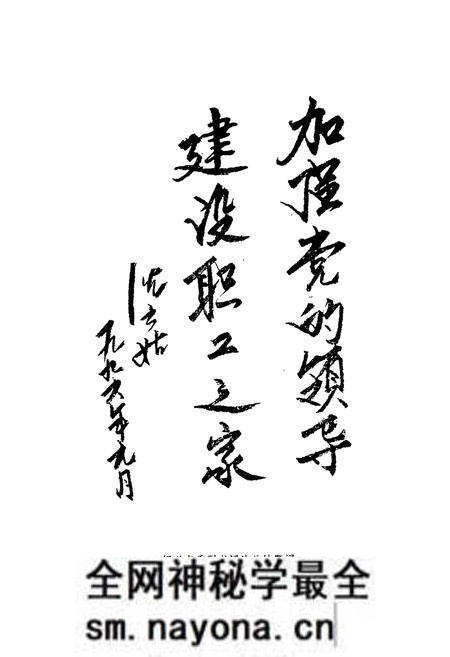 加强党的领导
建设职工之家
一九九六年九月
全网神秘学最全
sm.nayona.cn